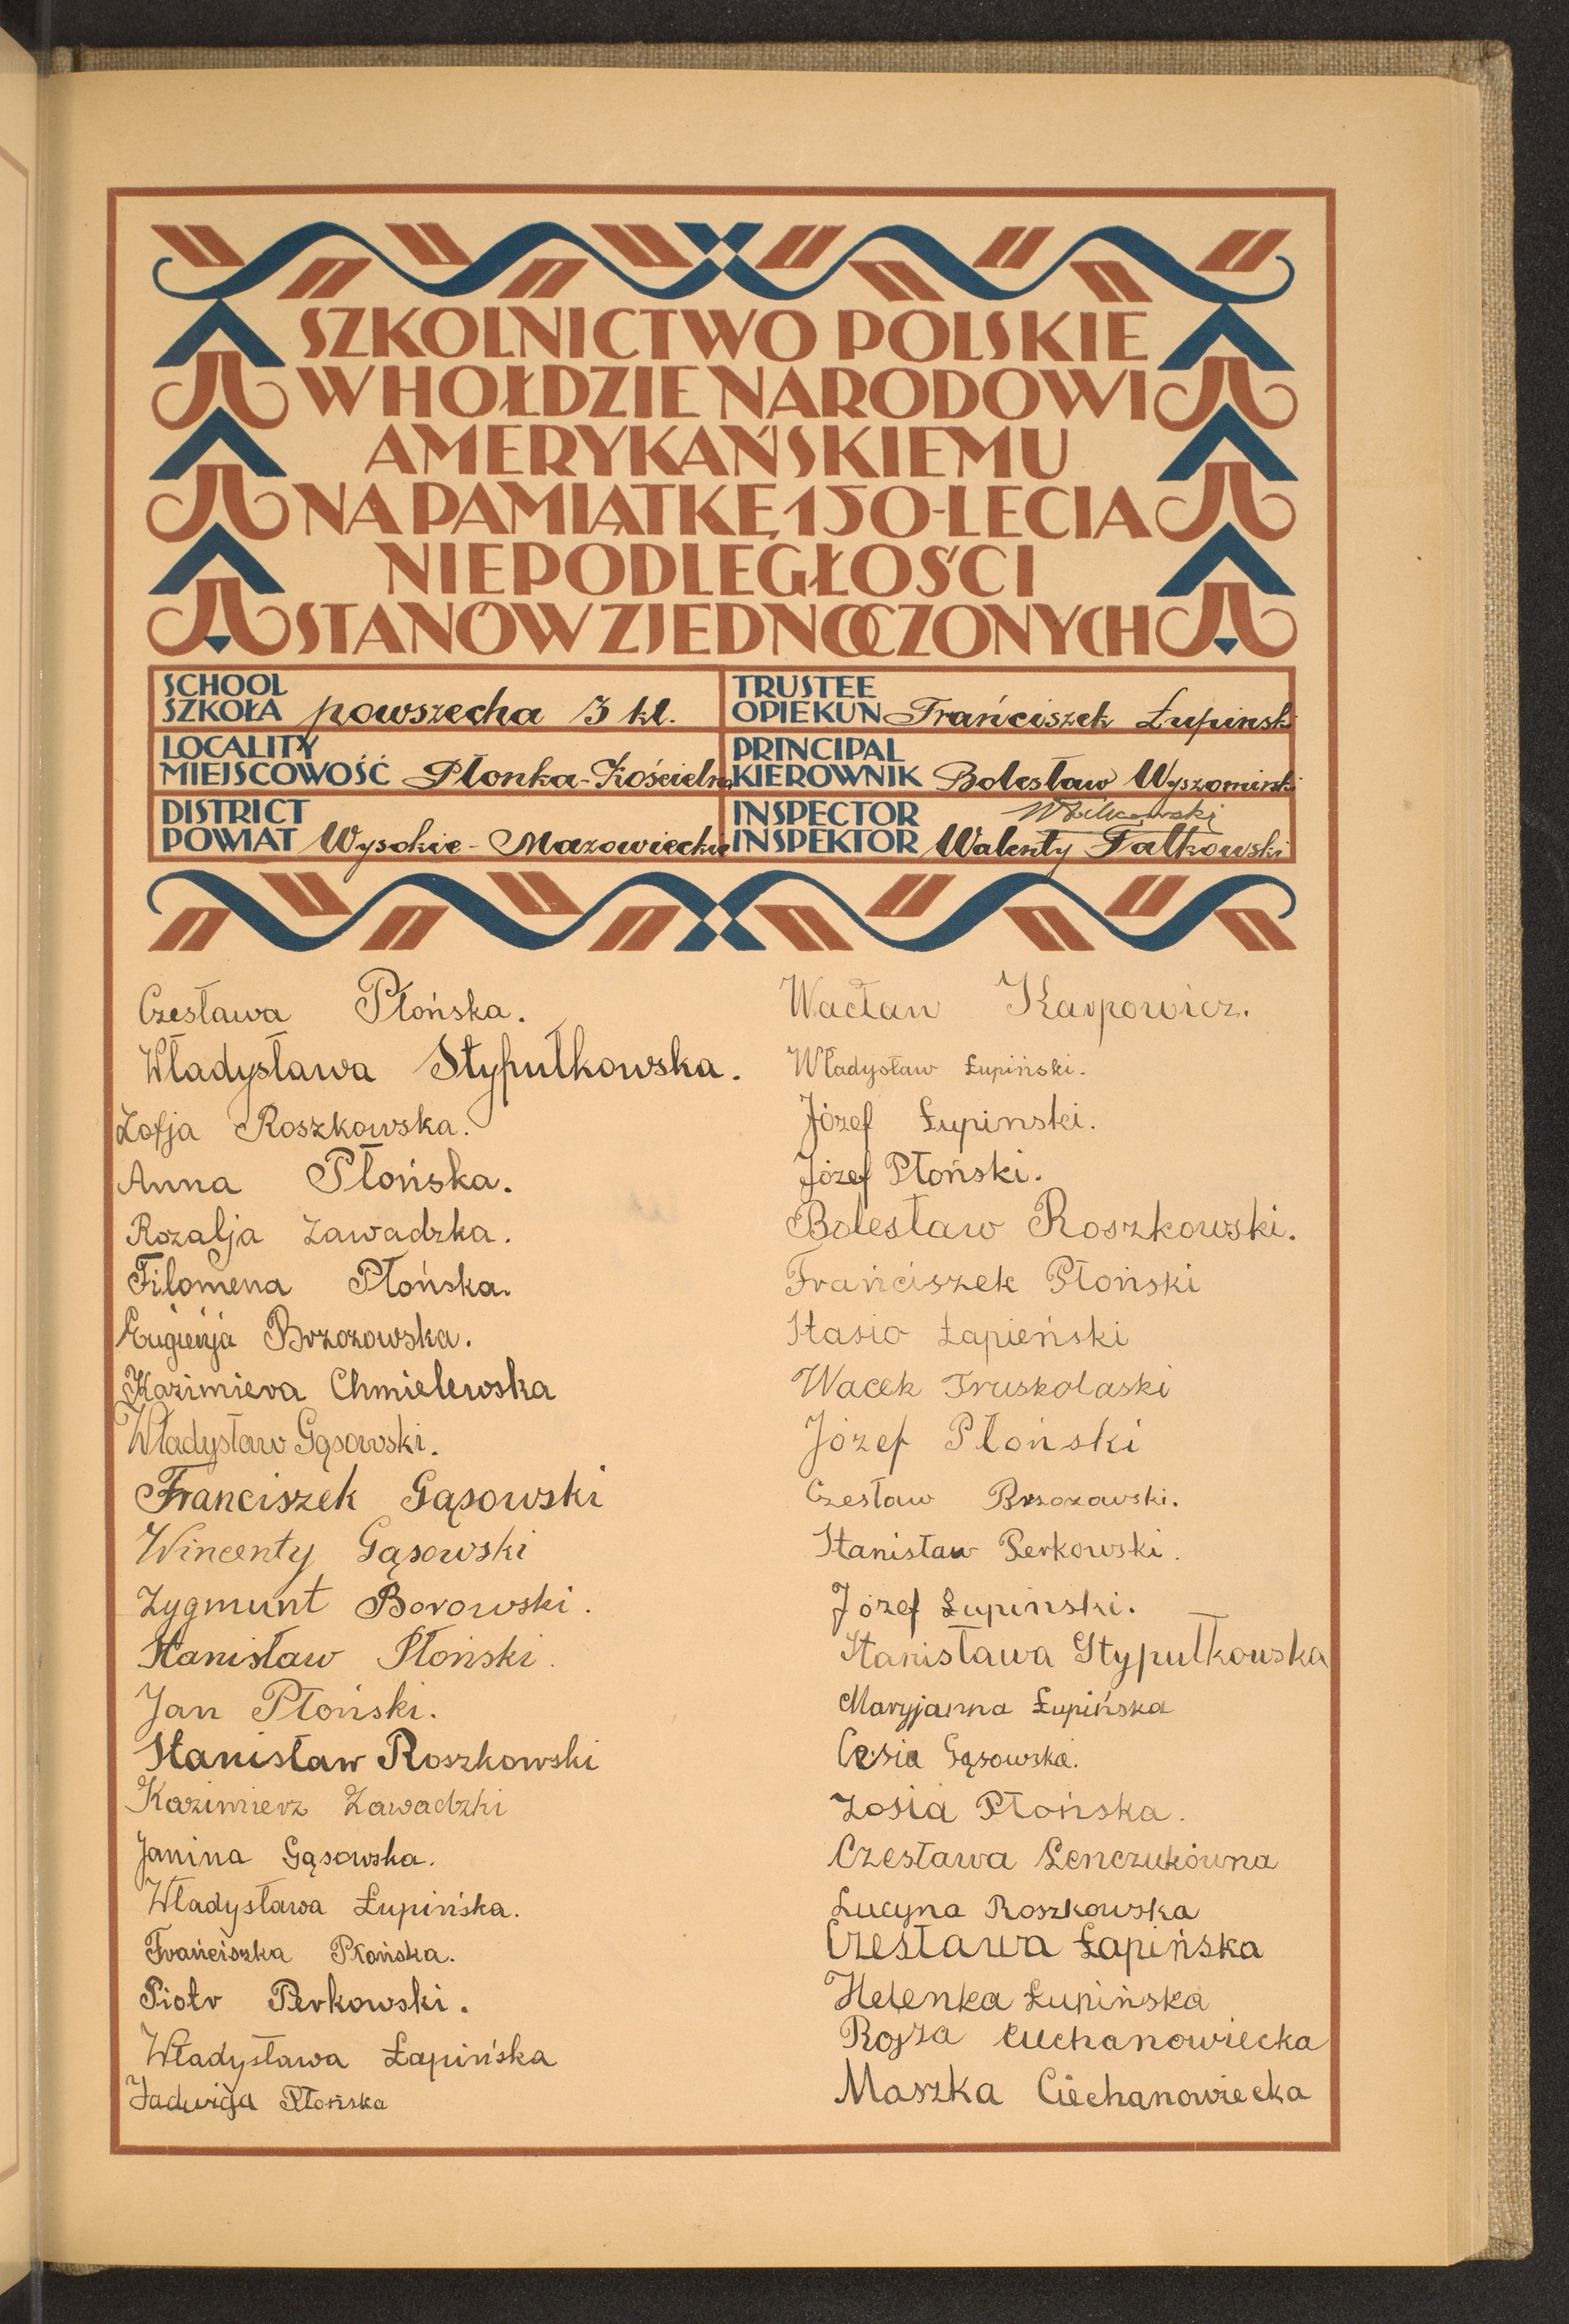 SZKOLNICTWO POLSKIE
W HOŁDZIE NARODOWI
AMERYKAŃSKIEMU
NA PAMIĄTKĘ 150-LECIA
NIEPODLEGŁOŚCI
STANÓW ZJEDNOCZONYCH
SCHOOL
SZKOŁA powszecha 3 kl.
TRUSTEE
OPIEKUN Frańciszek Łupinski
LOCALITY
MIEJSCOWOŚĆ Płonka-Kościelna
PRINCIPAL
KIEROWNIK Bolesław Wyszomirski
DISTRICT
POWIAT Wysokie-Mazowieckie
INSPECTOR
INSPEKTOR Walenty Fałkowski
Czesława Płońska.
Władysława Stypułkowska.
Zofja Roszkowska.
Anna Płońska.
Rozalja Zawadzka.
Filomena Płońska.
Eugienja Brzozowska.
Kazimiera Chmielewska
Władysław Gąsowski.
Franciszek Gąsowski
Wincenty Gąsowski
Zygmunt Borowski.
Stanisław Płoński.
Jan Płoński.
Stanisław Roszkowski
Kazimierz Zawadzki
Janina Gąsowska.
Władysława Łupińska.
Frańciszka Płońska.
Piotr Perkowski.
Władysława Łapińska
Jadwiga Płońska
Wacław Karpowicz.
Władysław Łupiński.
Józef Łupinski.
Józef Płoński.
Bolesław Roszkowski.
Frańciszek Płoński
Stasio Łapieński
Wacek Truskolaski
Józef Płoński
Czesław Brzozowski.
Stanisław Perkowski.
Józef Łupinski.
Stanisława Stypułkowska
Maryjanna Łupińska
Cesia Gąsowska.
Zosia Płońska.
Czesława Lenczukówna
Lucyna Roszkowska
Czesława Łapińska
Helenka Łupińska
Rojza Ciechanowiecka
Maszka Ciechanowiecka